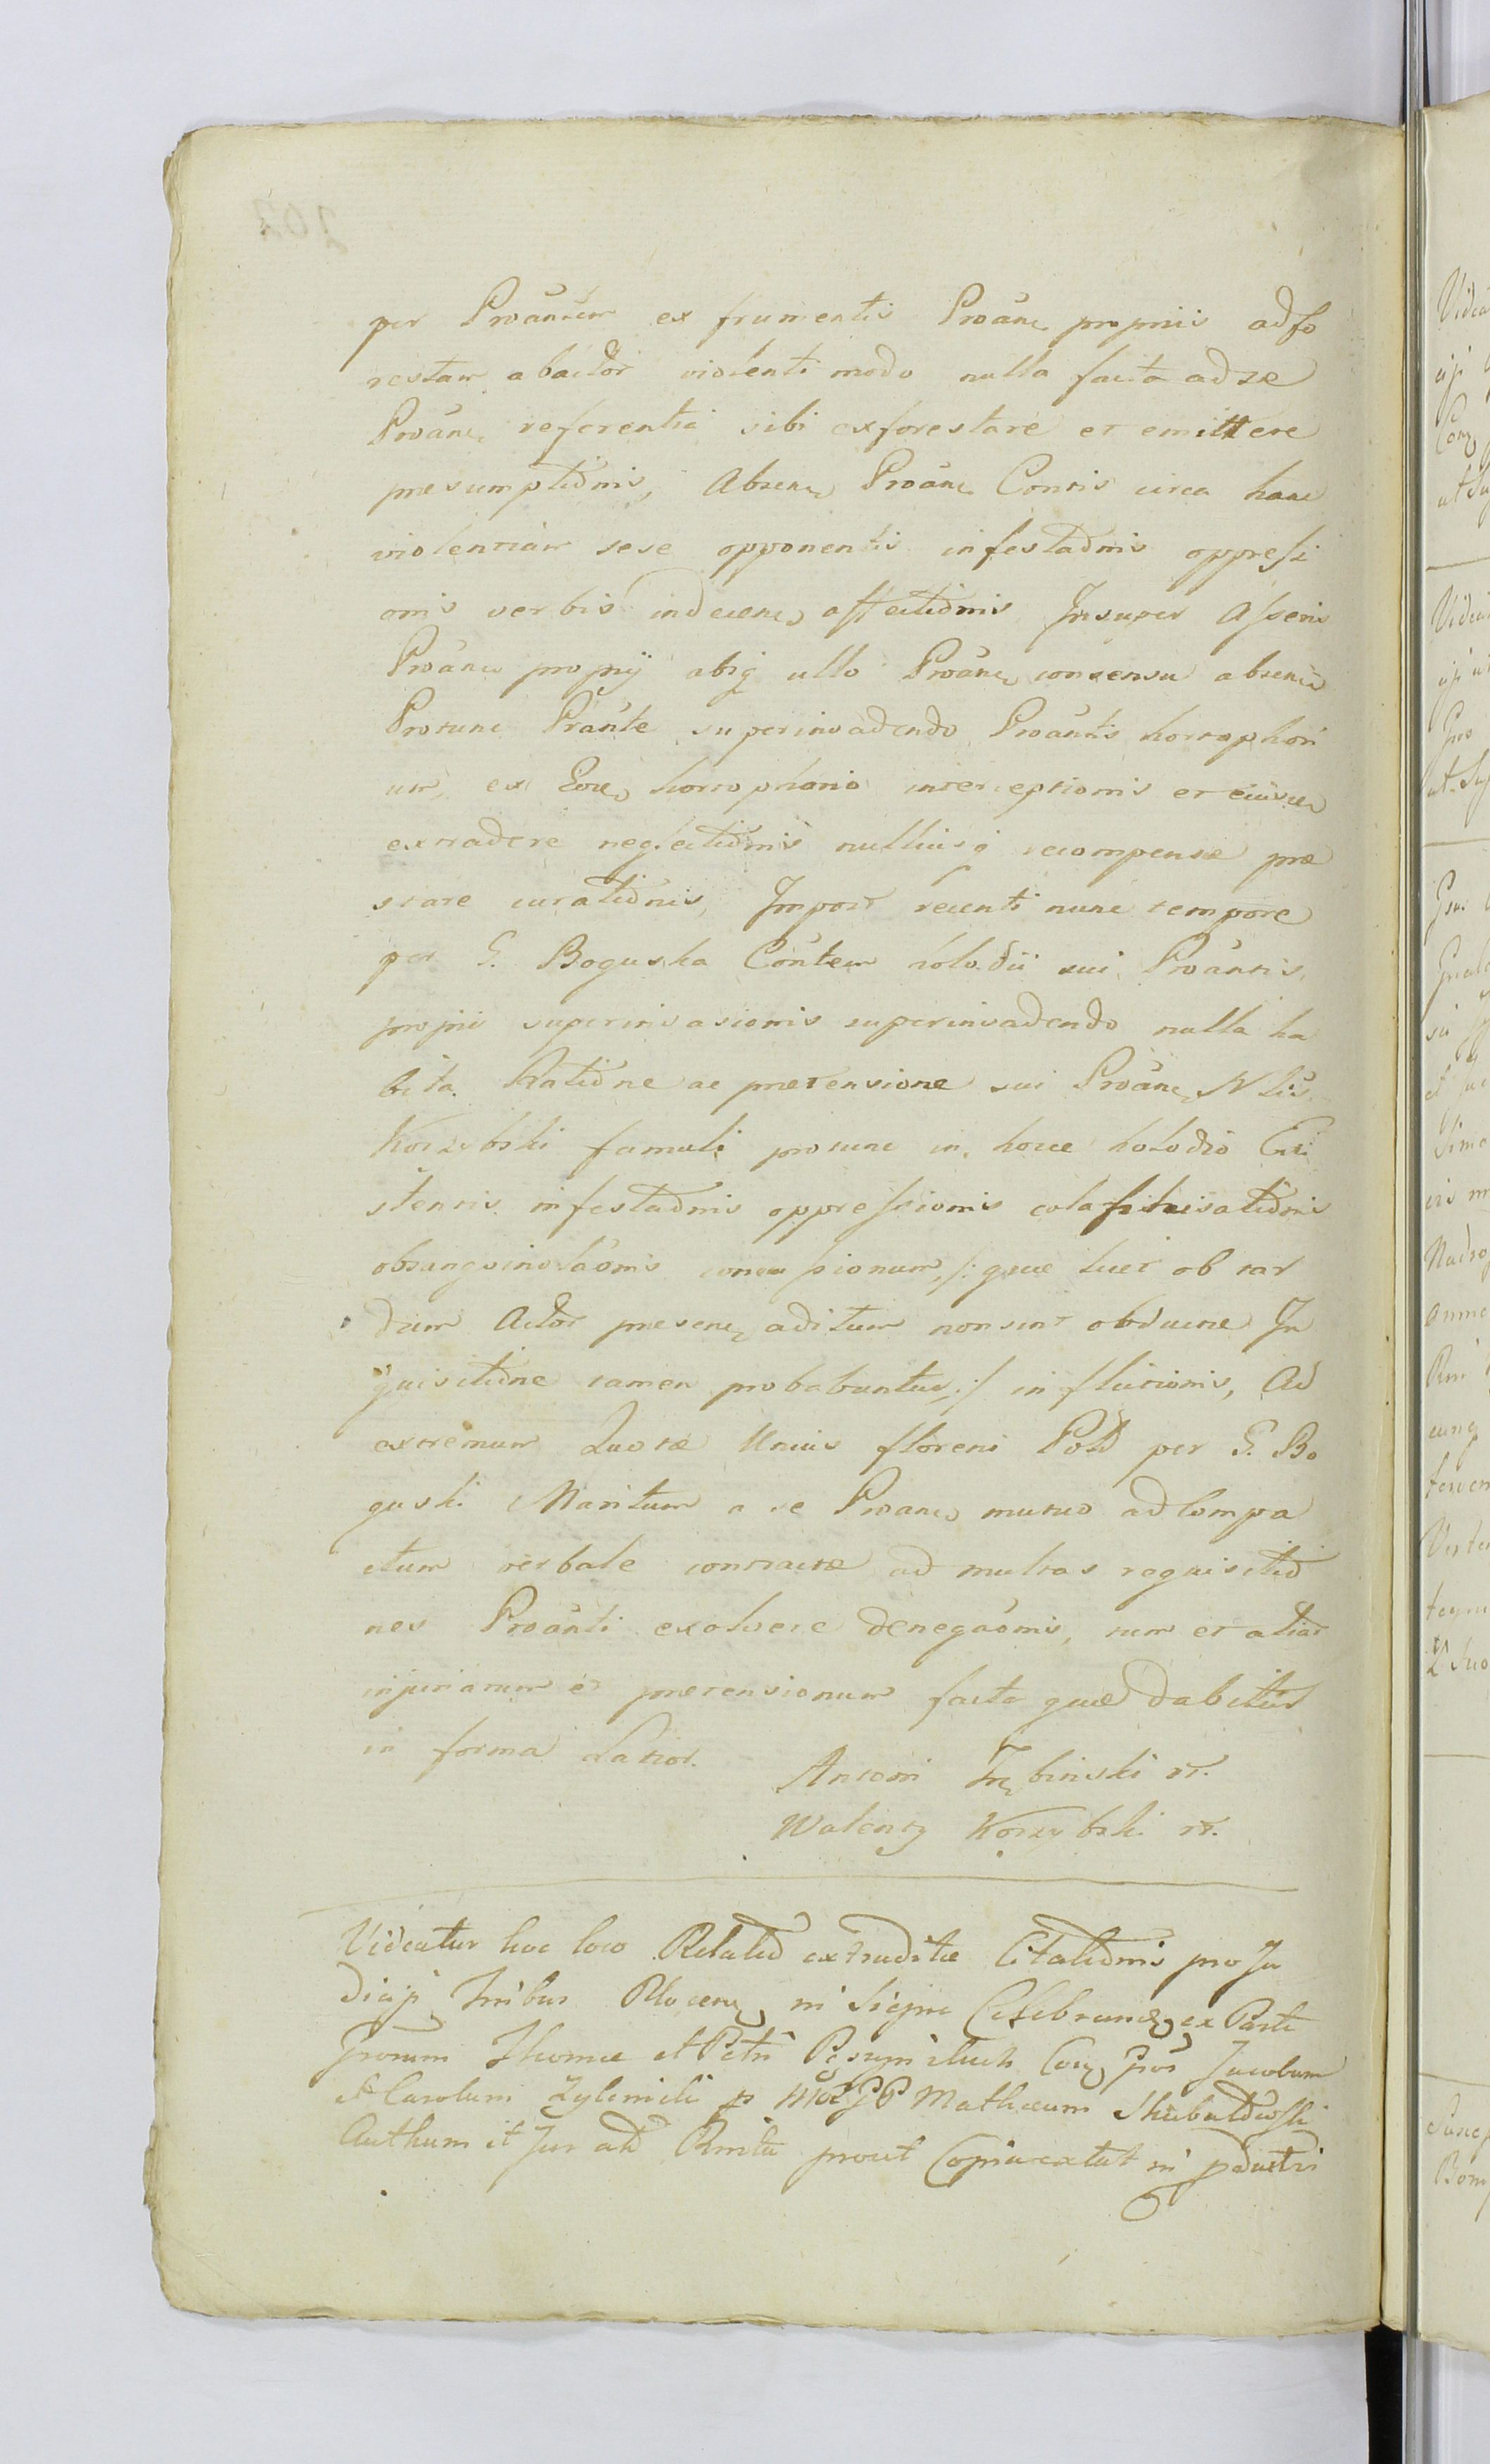 per Proantem ex frumentis Proanc propriis ad fo
restam abactor violenti modo nulla facta ad se
Proanc referentia sibi exforestare et emittere
presumptionis, Absenc Proanc Contis circa hanc
violentiam sese opponentis infestaonis oppressi
onis verbis indecenc affectionis Insuper Asseris
Proanc proprij absq ullo Proanc consensu absenc
Protunc Prante superinvadendo Proantis horraphori
um, ex horrophorio interceptionis et
extradere neglectionis nulliusq recompensæ præ
stare curationis, Impost recenti nunc tempore
per G. Boguska Contem holodii sui Proantis
proprii superinvasionis superinvadendo nulla ha
bita Ratione ac prætensione sui Proanc Nlis
Korzybski famuli protunc in hocce holodio Exi
stentis infestaonis oppressionis colaphisationis
obsanguinolaonis concussionum, /: quæ licet ob tar
dum Actor presenc aditum non sint obductæ In
quisitione tamen probabuntur :/ inflictionis, Ad
extremum Quotæ Unius floreni Pold per G. Bo
guski Maritum a se Proanc mutuo ad Compa
ctum verbale contractæ ad multas requisitio
nes Proanti exolvere denegaonis, tum et aliar
injuriarum et prætensionum facto quæ dabitur
in forma Latior.
Antoni Trębinski rr.
Walenty Korzybski rr.
Videatur hoc loco Relatio extraditæ Citationis pro Ju
dicijs Tribus Plocenc in Sierpc Celebrandis ex Parte
Grorum Thomæ et Petri Conc Gros Jacobum
et Carolum Zylinski p Matheum Skubaldwski
Authum et Jurato prout Copia extat in pduetri